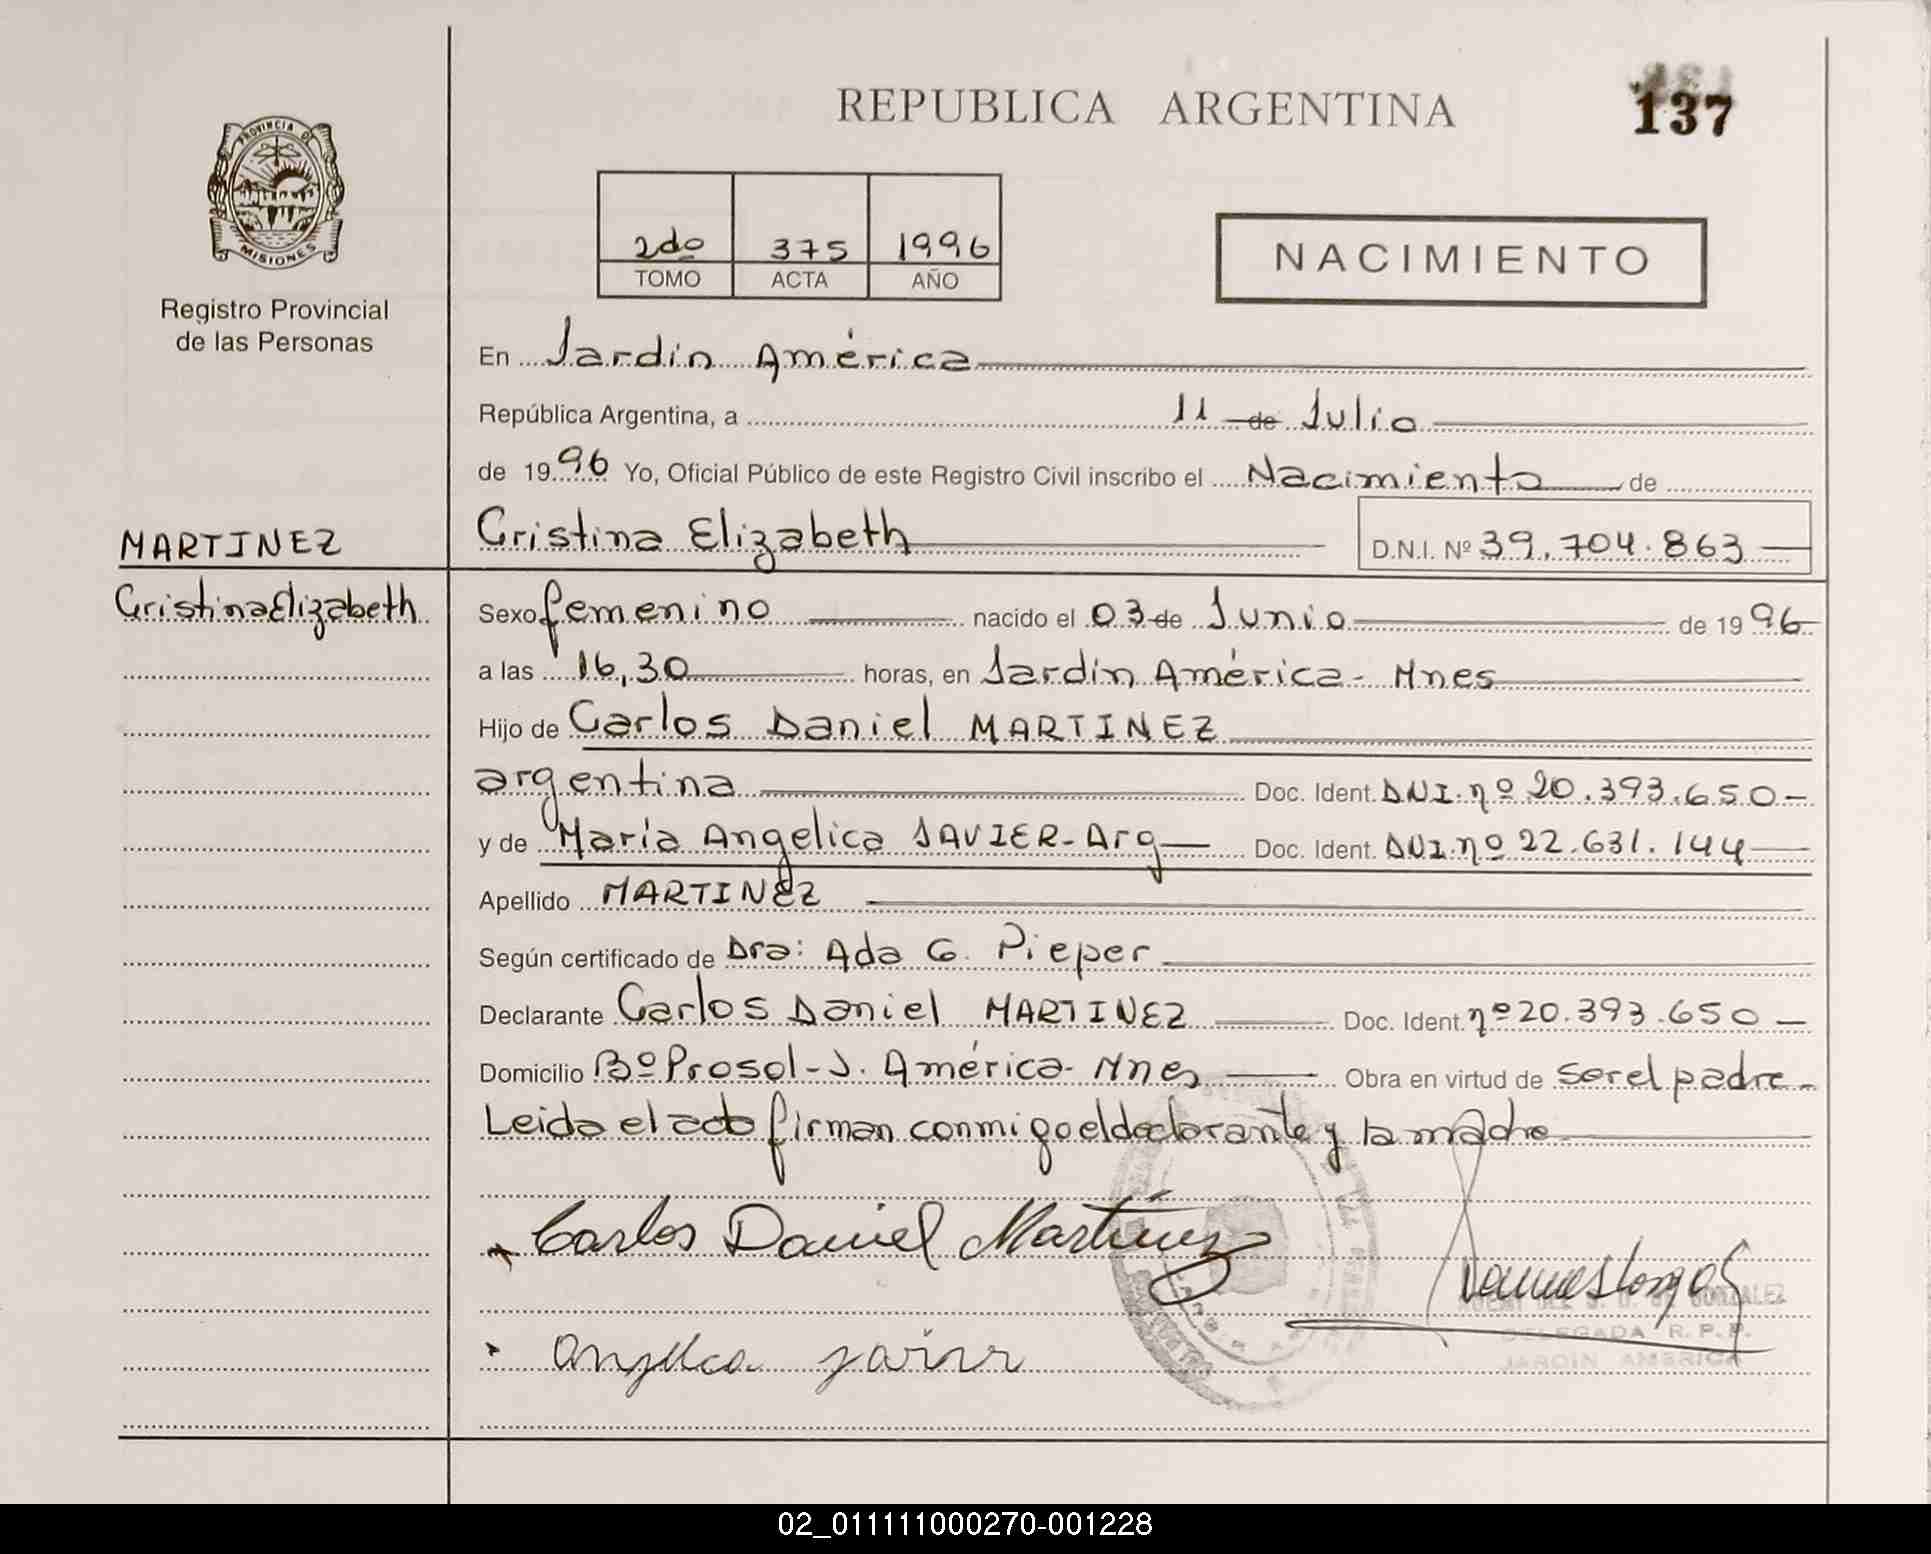 REPUBLICA ARGENTINA
137
PROVINCIA DE
MISIONES
Registro Provincial
de las Personas
2do 375 1996
TOMO ACTA AÑO
NACIMIENTO
En Jardín América
República Argentina, a 11 de Julio
de 1996 Yo, Oficial Público de este Registro Civil inscribo el Nacimiento de
MARTINEZ
Cristina Elizabeth
Cristina Elizabeth D.N.I. Nº 39.704.863
Sexo femenino nacido el 03 de Junio de 1996
a las 16,30 horas, en Jardín América - Mnes
Hijo de Carlos Daniel MARTINEZ
argentina Doc. Ident. DNI. nº 20.393.650-
y de María Angelica JAVIER - Arg Doc. Ident. DNI. nº 22.631.144
Apellido MARTINEZ
Según certificado de Dra: Ada G. Pieper
Declarante Carlos Daniel MARTINEZ Doc. Ident. nº 20.393.650-
Domicilio Bº Prosol - J. América - Mnes Obra en virtud de ser el padre-
Leida el acta firman conmigo el declarante y la madre
Carlos Daniel Martínez
Angelica Javier
GONZALEZ
DELEGADA R.P.P.
JARDIN AMERICA
02_011111000270-001228